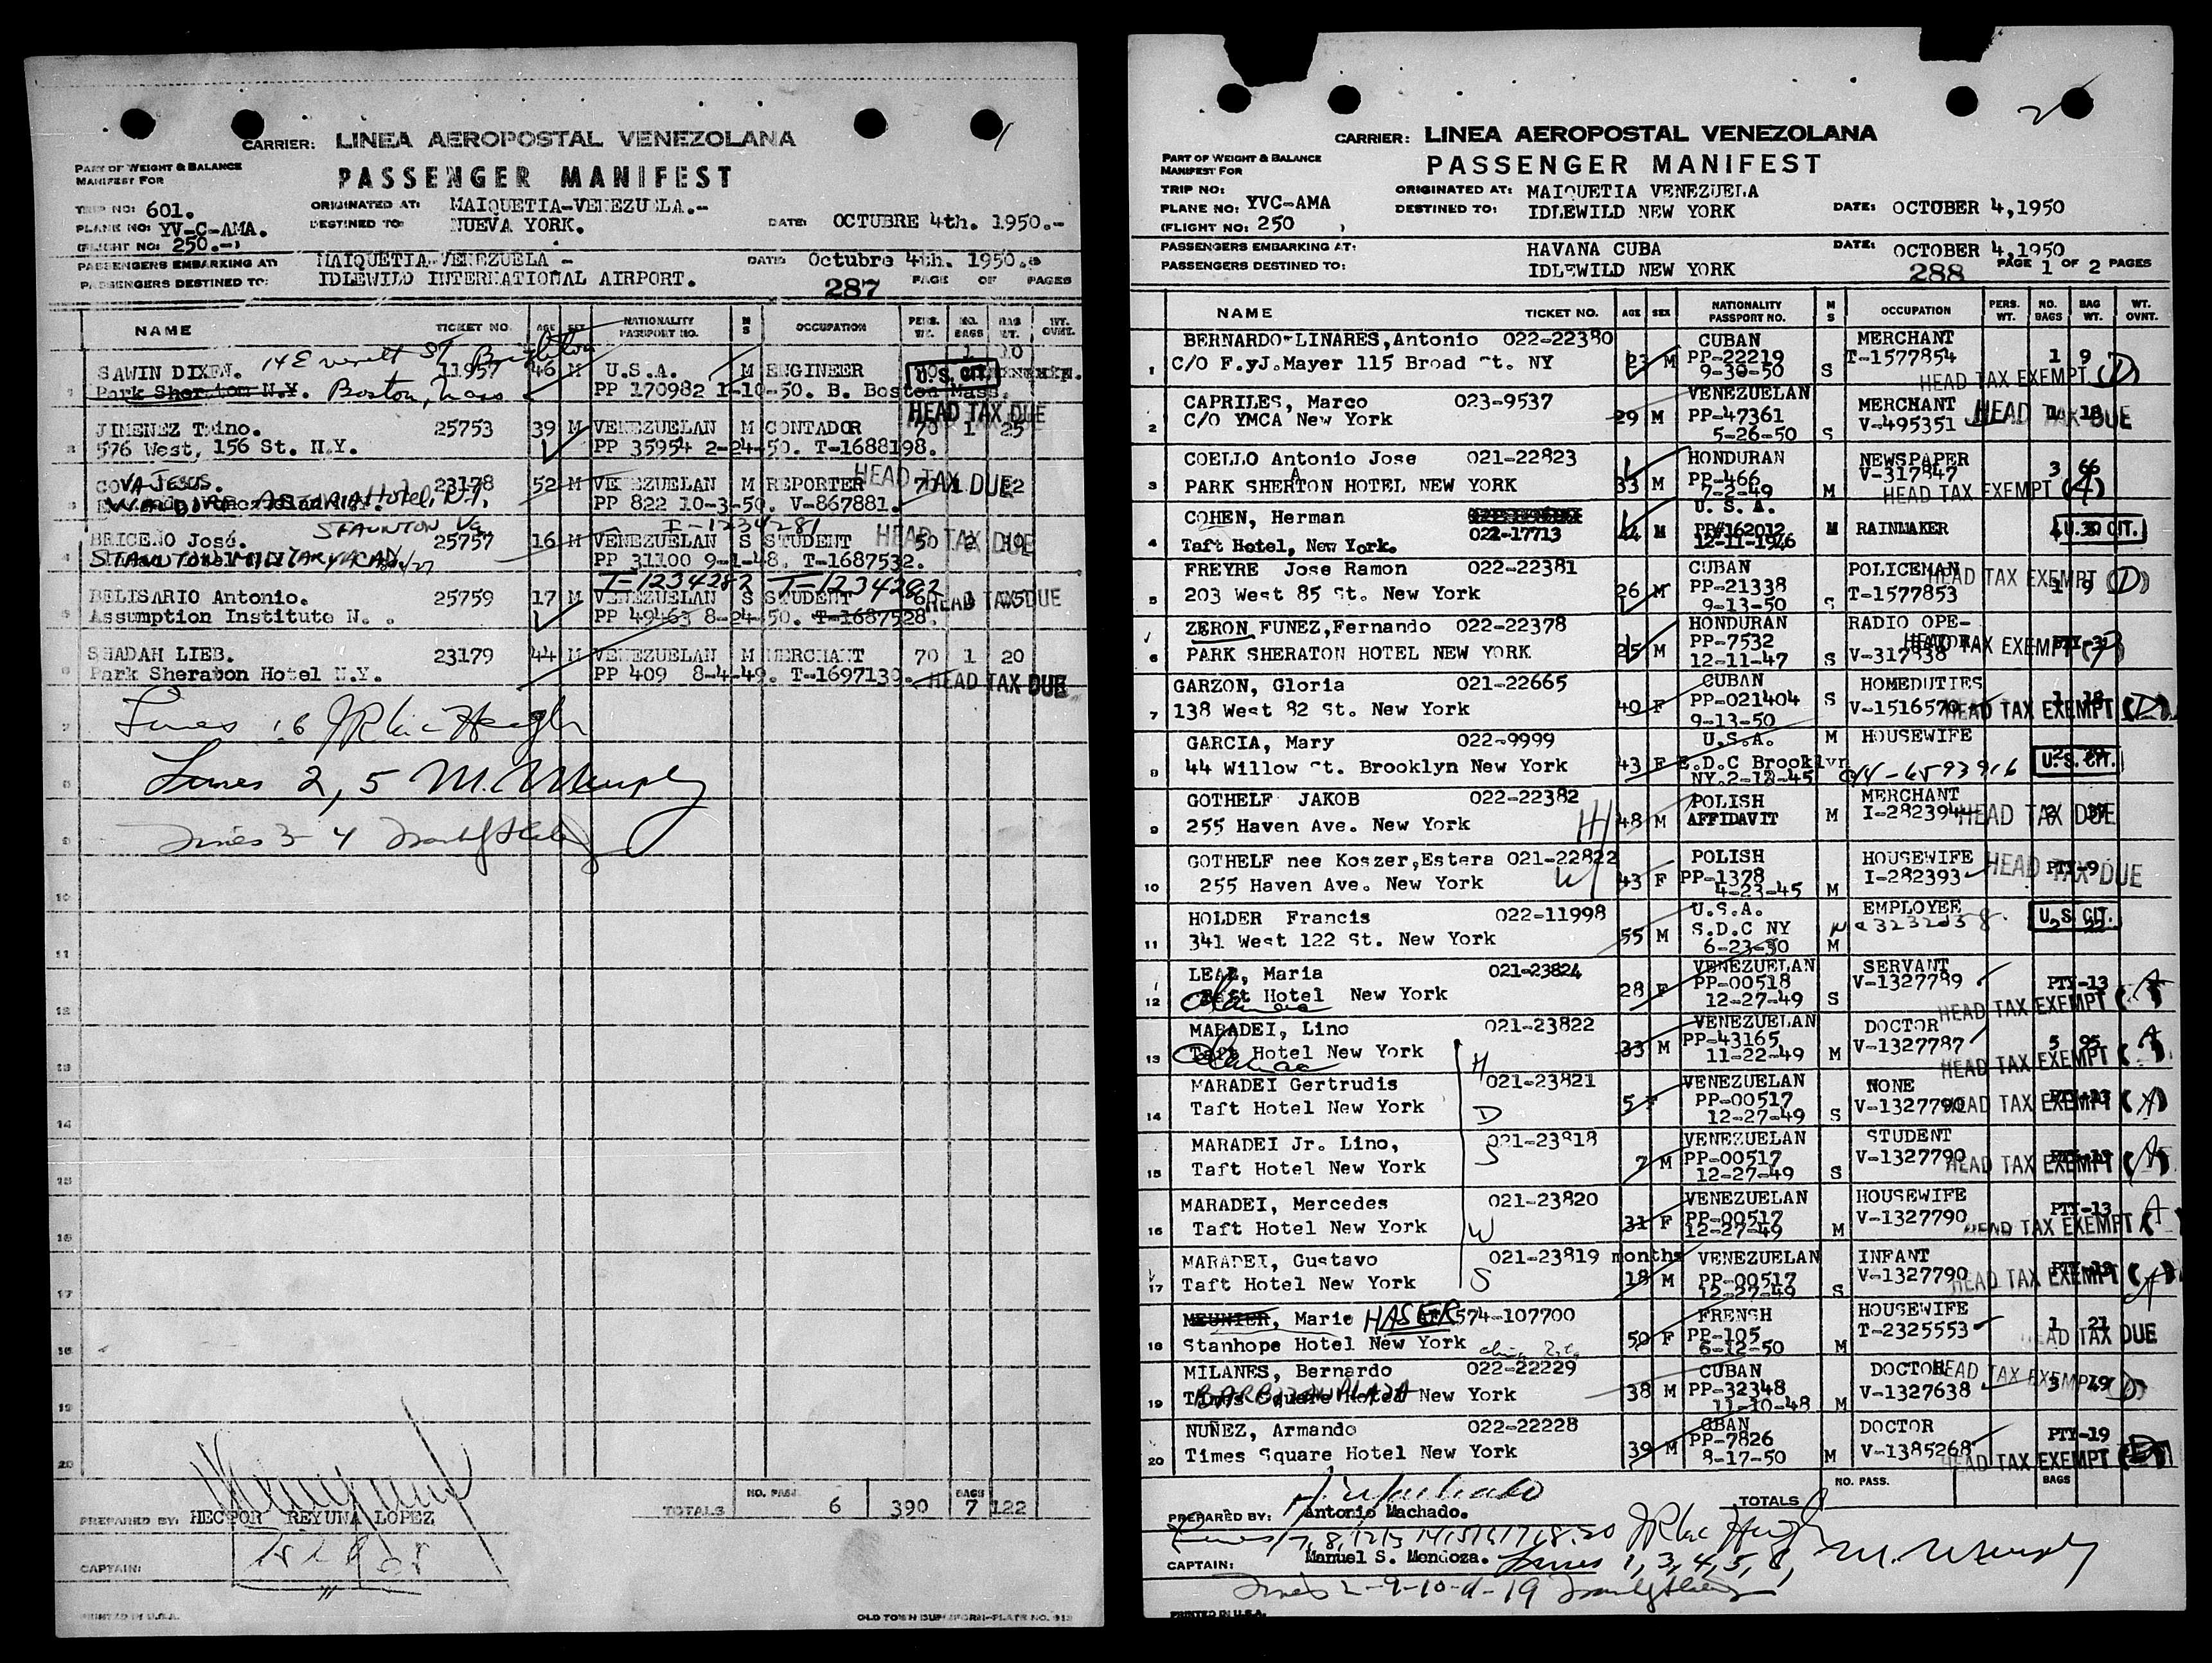 1
CARRIER: LINEA AEROPOSTAL VENEZOLANA
PART OF WEIGHT & BALANCE
MANIFEST FOR
PASSENGER MANIFEST
TRIP NO: 601.
ORIGINATED AT: MAIQUETIA-VENEZUELA.-
PLANE NO: YV-C-AMA.
DESTINED TO: NUEVA YORK.
DATE: OCTUBRE 4th. 1950.-
(FLIGHT NO: 250.-)
PASSENGERS EMBARKING AT: MAIQUETIA-VENEZUELA -
DATE: Octubre 4th. 1950.-
PASSENGERS DESTINED TO: IDLEWILD INTERNATIONAL AIRPORT.
287
PAGE OF PAGES
NAME TICKET NO. AGE SEX NATIONALITY PASSPORT NO. M S OCCUPATION PERS. WT. NO. BAGS BAG WT. WT. OVNT.
14 Everett ST Brighton
1 SAWIN DIXEN. 11957 46 M U.S.A. M ENGINEER U.S. CIT.
Park Sheraton N.Y. Boston, Mass PP 170982 1-10-50. B. Boston Mass.
HEAD TAX DUE
2 JIMENEZ Trino. 25753 39 M VENEZUELAN M CONTADOR 70 1 25
576 West, 156 St. N.Y. PP 35954 2-24-50. T-1688198.
HEAD TAX DUE
3 COVA JESUS. 23178 52 M VENEZUELAN M REPORTER 70 1
WALDORF ASTORIA Hotel, N.Y. PP 822 10-3-50. V-867881.
STAUNTON Va T-1234281
HEAD TAX DUE
4 BRICEÑO José. 25757 16 M VENEZUELAN S STUDENT 50 2
STAUNTON MILITARY ACAD PP 31100 9-1-48. T-1687532.
T-1234282 T-1234282
5 BELISARIO Antonio. 25759 17 M VENEZUELAN S STUDENT HEAD TAX DUE
Assumption Institute N. . PP 49463 8-24-50. T-1687528.
6 SHADAH LIEB. 23179 44 M VENEZUELAN M MERCHANT 70 1 20
Park Sheraton Hotel N.Y. PP 409 8-4-49. T-1697139.
HEAD TAX DUE
7 Lines 1.6
8 Lines 2, 5 M. Murphy
9 Lines 3-4
10
11
12
13
14
15
16
17
18
19
20
TOTALS NO. PASS. 6 390 BAGS 7 122
PREPARED BY: HECTOR REYUNA LOPEZ
CAPTAIN:
PRINTED IN U.S.A.
OLD TOWN DUPLIFORM-PLATE NO. 912
2
CARRIER: LINEA AEROPOSTAL VENEZOLANA
PART OF WEIGHT & BALANCE
MANIFEST FOR
PASSENGER MANIFEST
TRIP NO:
ORIGINATED AT: MAIQUETIA VENEZUELA
PLANE NO: YVC-AMA
DESTINED TO: IDLEWILD NEW YORK
DATE: OCTOBER 4,1950
(FLIGHT NO: 250 )
PASSENGERS EMBARKING AT: HAVANA CUBA
DATE: OCTOBER 4,1950
PASSENGERS DESTINED TO: IDLEWILD NEW YORK
288 PAGE 1 OF 2 PAGES
NAME TICKET NO. AGE SEX NATIONALITY PASSPORT NO. M S OCCUPATION PERS. WT. NO. BAGS BAG WT. WT. OVNT.
BERNARDO-LINARES,Antonio 022-22380 CUBAN MERCHANT
1 C/O F.yJ.Mayer 115 Broad St. NY 23 M PP-22219 9-30-50 S T-1577854 1 9
HEAD TAX EXEMPT (D)
CAPRILES, Marco 023-9537 VENEZUELAN MERCHANT
2 C/O YMCA New York 29 M PP-47361 5-26-50 S V-495351 1 18 HEAD TAX DUE
COELLO Antonio Jose 021-22823 HONDURAN NEWSPAPER
3 PARK SHERATON HOTEL NEW YORK 33 M PP-466 7-2-49 M V-317847 3 66
HEAD TAX EXEMPT (A)
COHEN, Herman U. S. A.
4 Taft Hotel, New York. 022-17713 44 M PP#162012 12-11-1946 M RAINMAKER U.S. CIT.
FREYRE Jose Ramon 022-22381 CUBAN POLICEMAN
5 203 West 85 St. New York 26 M PP-21338 9-13-50 S T-1577853 1 9 HEAD TAX EXEMPT (D)
ZERON FUNEZ,Fernando 022-22378 HONDURAN RADIO OPE-
6 PARK SHERATON HOTEL NEW YORK 25 M PP-7532 12-11-47 S V-317838 PTY-3 HEAD TAX EXEMPT
GARZON, Gloria 021-22665 CUBAN HOMEDUTIES
7 138 West 82 St. New York 40 F PP-021404 9-13-50 S V-1516570 1 18 HEAD TAX EXEMPT (D)
GARCIA, Mary 022-9999 U.S.A. M HOUSEWIFE
8 44 Willow St. Brooklyn New York 43 F E.D.C Brooklyn NY.2-13-45 6593916 U.S. CIT.
GOTHELF JAKOB 022-22382 POLISH MERCHANT
9 255 Haven Ave. New York H 48 M AFFIDAVIT M I-282394 HEAD TAX DUE
GOTHELF nee Koszer,Estera 021-22822 POLISH HOUSEWIFE
10 255 Haven Ave. New York W 43 F PP-1378 4-23-45 M I-282393 PTY-9 HEAD TAX DUE
HOLDER Francis 022-11998 U.S.A. EMPLOYEE
11 341 West 122 St. New York 55 M S.D.C NY 6-23-30 M U.S. CIT.
LEAL, Maria 021-23824 VENEZUELAN SERVANT
12 Taft Hotel New York 28 F PP-00518 12-27-49 S V-1327789 PTY-13
HEAD TAX EXEMPT (A)
MARADEI, Lino 021-23822 VENEZUELAN DOCTOR
13 Taft Hotel New York H 33 M PP-43165 11-22-49 M V-1327787 5 95
HEAD TAX EXEMPT (A)
MARADEI Gertrudis 021-23821 VENEZUELAN NONE
14 Taft Hotel New York D 5 F PP-00517 12-27-49 S V-1327790 PTY-13 HEAD TAX EXEMPT (A)
MARADEI Jr. Lino, 021-23818 VENEZUELAN STUDENT
15 Taft Hotel New York S 7 M PP-00517 12-27-49 S V-1327790 PTY-13 HEAD TAX EXEMPT (A)
MARADEI, Mercedes 021-23820 VENEZUELAN HOUSEWIFE
16 Taft Hotel New York W 31 F PP-00517 12-27-49 M V-1327790 PTY-13 HEAD TAX EXEMPT (A)
MARADEI, Gustavo 021-23819 months VENEZUELAN INFANT
17 Taft Hotel New York S 18 M PP-00517 12-27-49 S V-1327790 HEAD TAX EXEMPT (A)
MEUNIER, Marie HASER 574-107700 FRENSH HOUSEWIFE
18 Stanhope Hotel New York 50 F PP-105 6-12-50 M T-2325553 1 21 HEAD TAX DUE
MILANES, Bernardo 022-22229 CUBAN DOCTOR HEAD TAX EXEMPT (D)
19 Times Square Hotel New York BARBIZON PLAZA 38 M PP-32348 11-10-48 M V-1327638 3 49
NUÑEZ, Armando 022-22228 CBAN DOCTOR
20 Times Square Hotel New York 39 M PP-7826 8-17-50 M V-1385268 PTY-19
HEAD TAX EXEMPT (D)
NO. PASS. BAGS
TOTALS
A. Machado
PREPARED BY: Antonio Machado.
Lines
CAPTAIN: Manuel S. Mendoza. Lines 1, 3, 4, 5, 6, M. Murphy
Lines 2-9-10-11-19
PRINTED IN U.S.A.